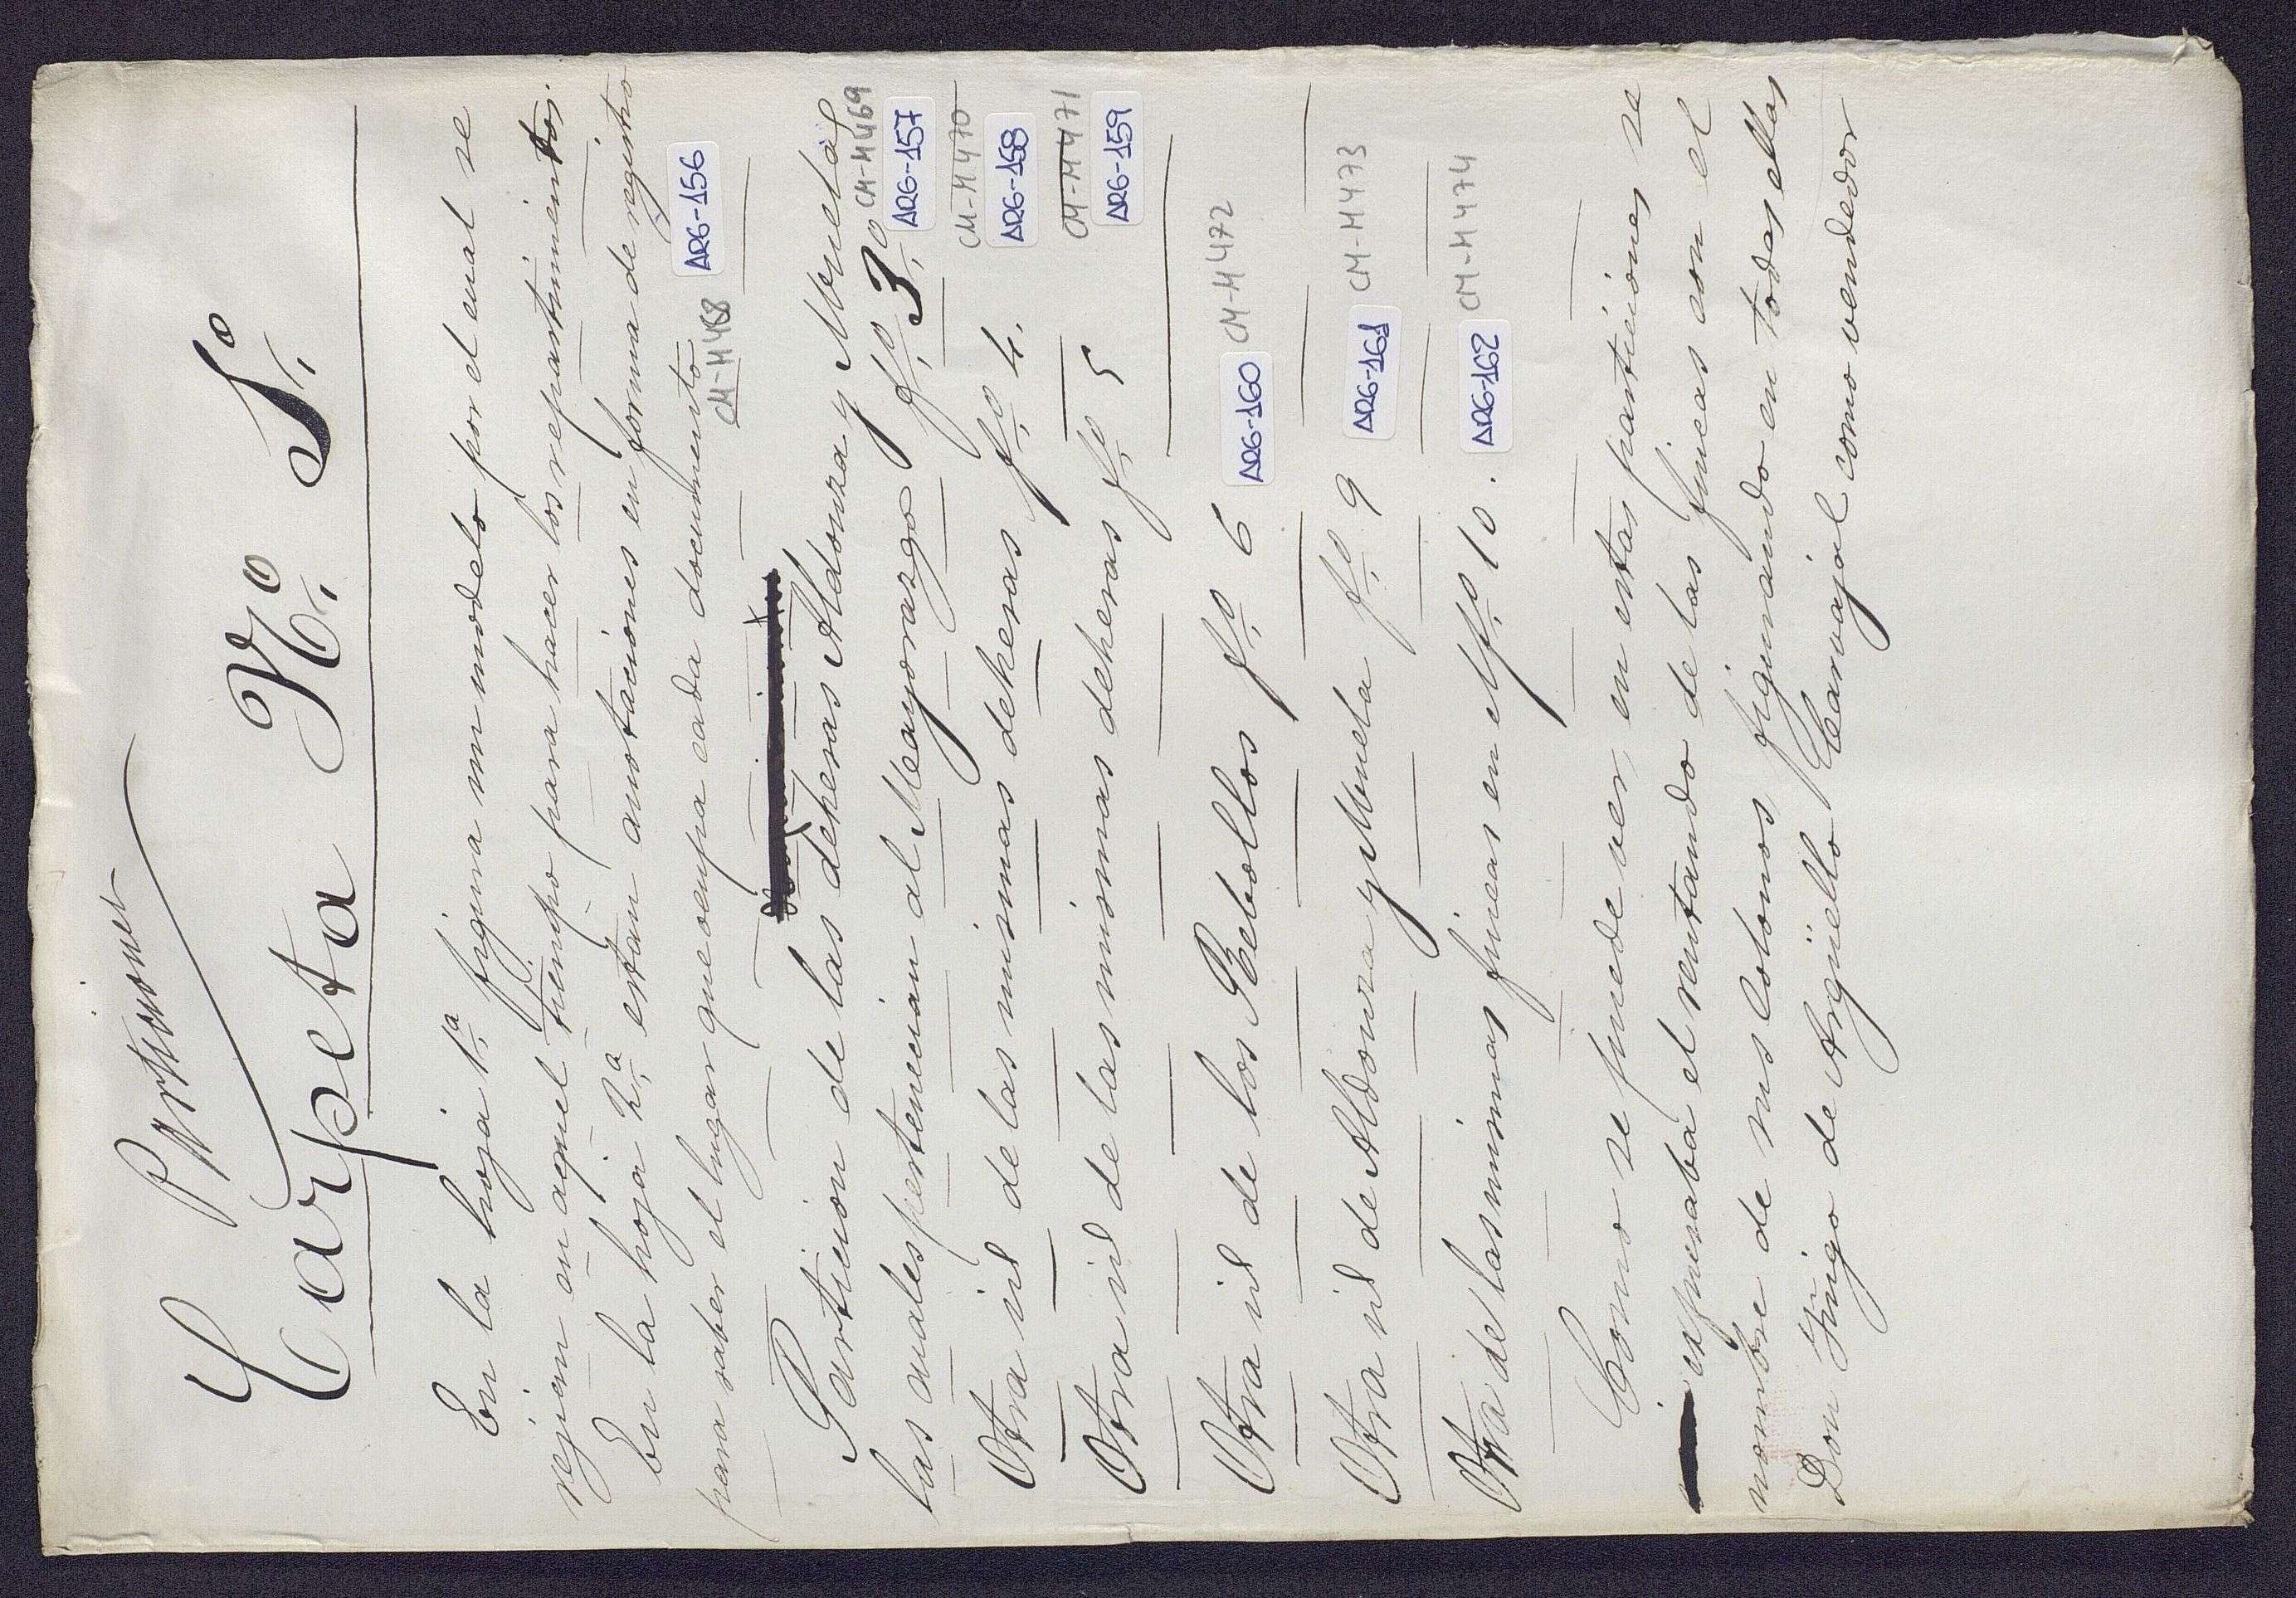 Particiones
Carpeta N.º 1.º
En la hoja 1.ª figura un modelo por el cual se
rejian en aquel tiempo para hacer los repartimientos.
En la hoja 2.ª estan anotaciones en forma de registro
para saber el lugar que ocupa cada documento CM-H468 ARG-156
Particion de las dehesas Aldonza y Muela, CM-H469
las cuales pertenecian al Mayorazgo fº 3.º ARG-157
Otra id de las mismas dehesas fº 4. CM-H470 ARG-158
Otra id de las mismas dehesas fº 5 CM-H471 ARG-159
Otra id de los Rebollos fº 6 ARG-160 CM-H472
Otra id de Aldonza y Muela fº 9 ARG-161 CM-H473
Otra de las mismas fincas en el fº 10. ARG-162 CM-H474
Como se puede ver, en estas particiones se
expresaba el rentando de las fincas con el
nombre de sus colonos, figurando en todas ellas
Don Iñigo de Argüello Carvajal como vendedor